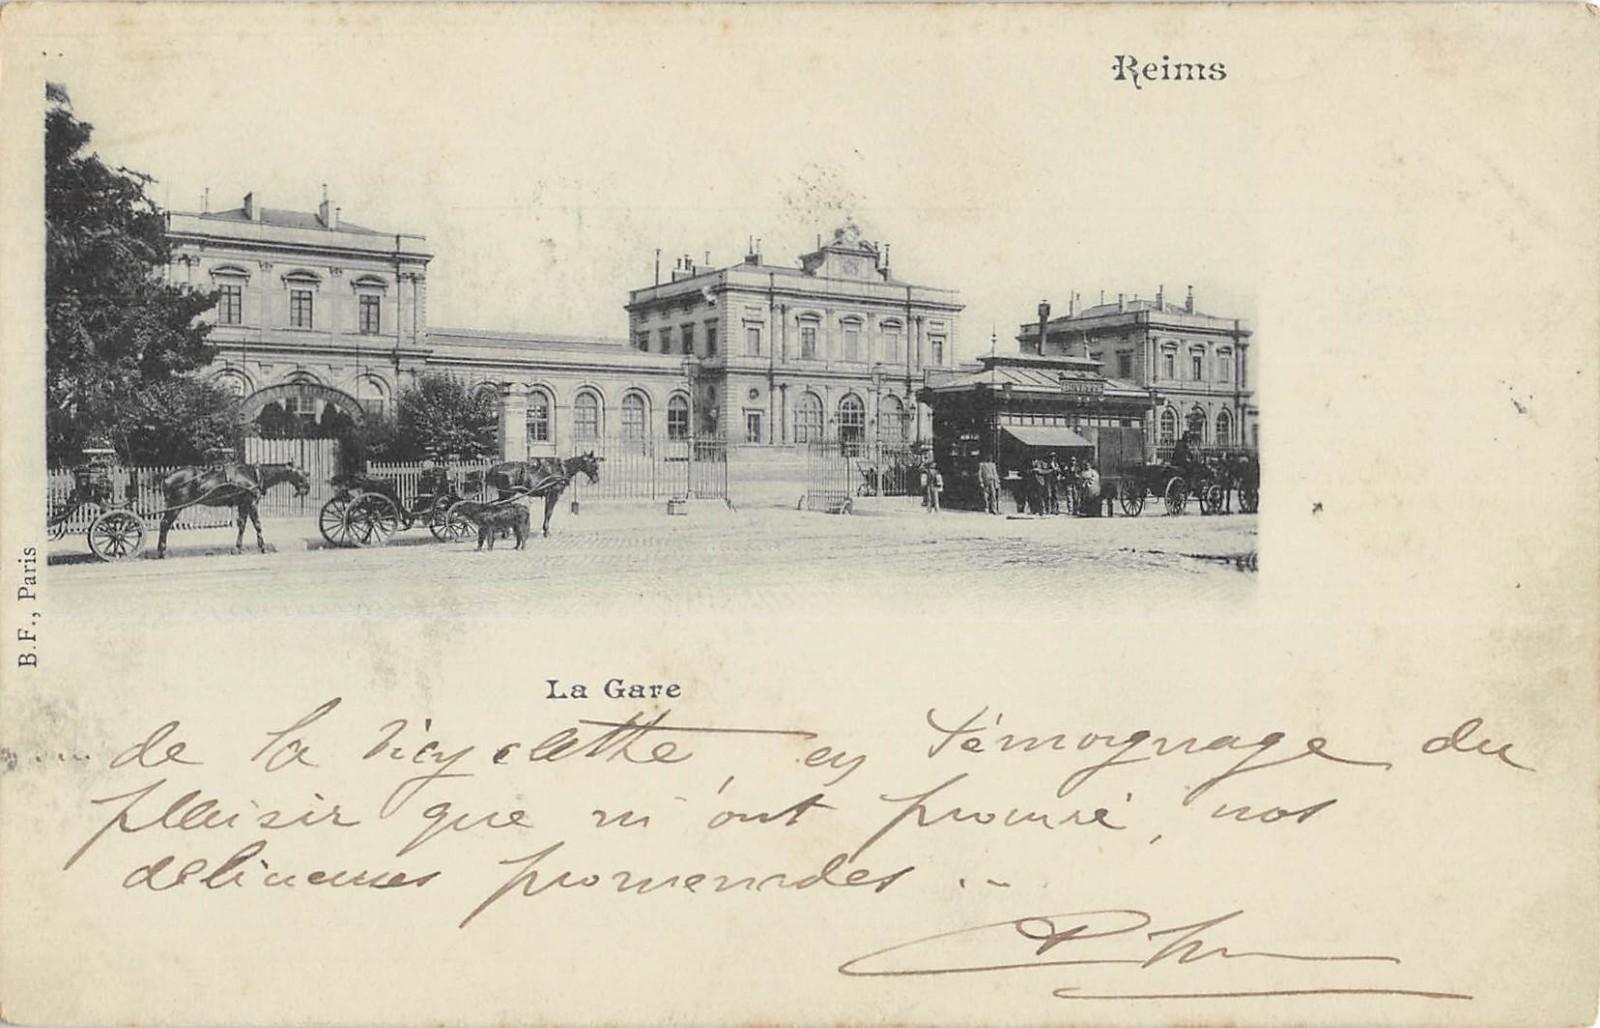 Reims
BUVETTE
B.F., Paris
La Gare
... de la bicyclette, en témoignage du
plaisir que m'ont procuré, nos
délicieuses promenades ...